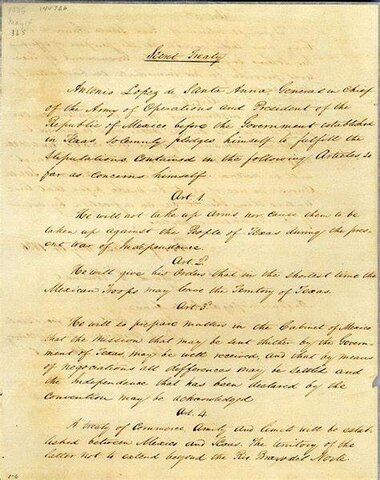 1836
May 14
325
Secret Treaty
Antonio Lopez de Santa Anna, General in Chief
of the Army of Operations and President of the
Republic of Mexico before the Government established
in Texas, Solemnly pledges himself to fulfill the
Stipulations contained in the following Articles so
far as concerns himself
Art 1.
He will not take up Arms nor cause them to be
taken up against the People of Texas during the pres-
ent War of Independence.
Art 2.
He will give his Orders that in the shortest time the
Mexican Troops may leave the Territory of Texas.
Art. 3.
He will so prepare matters in the Cabinet of Mexico
that the Mission that may be sent thither by the Govern-
ment of Texas may be well received, and that by means
of negociations all differences may be settled and
the Independence that has been declared by the
Convention may be acknowledged
Art. 4.
A treaty of Commerce, Amity and limits will be estab-
lished between Mexico and Texas. The territory of the
latter not to extend beyond the Rio Bravo del Norte